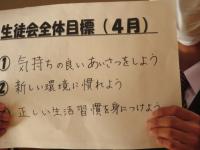 生徒会全体目標(4月)
① 気持ちの良いあいさつをしよう
② 新しい環境に慣れよう
③ 正しい生活習慣を身につけよう